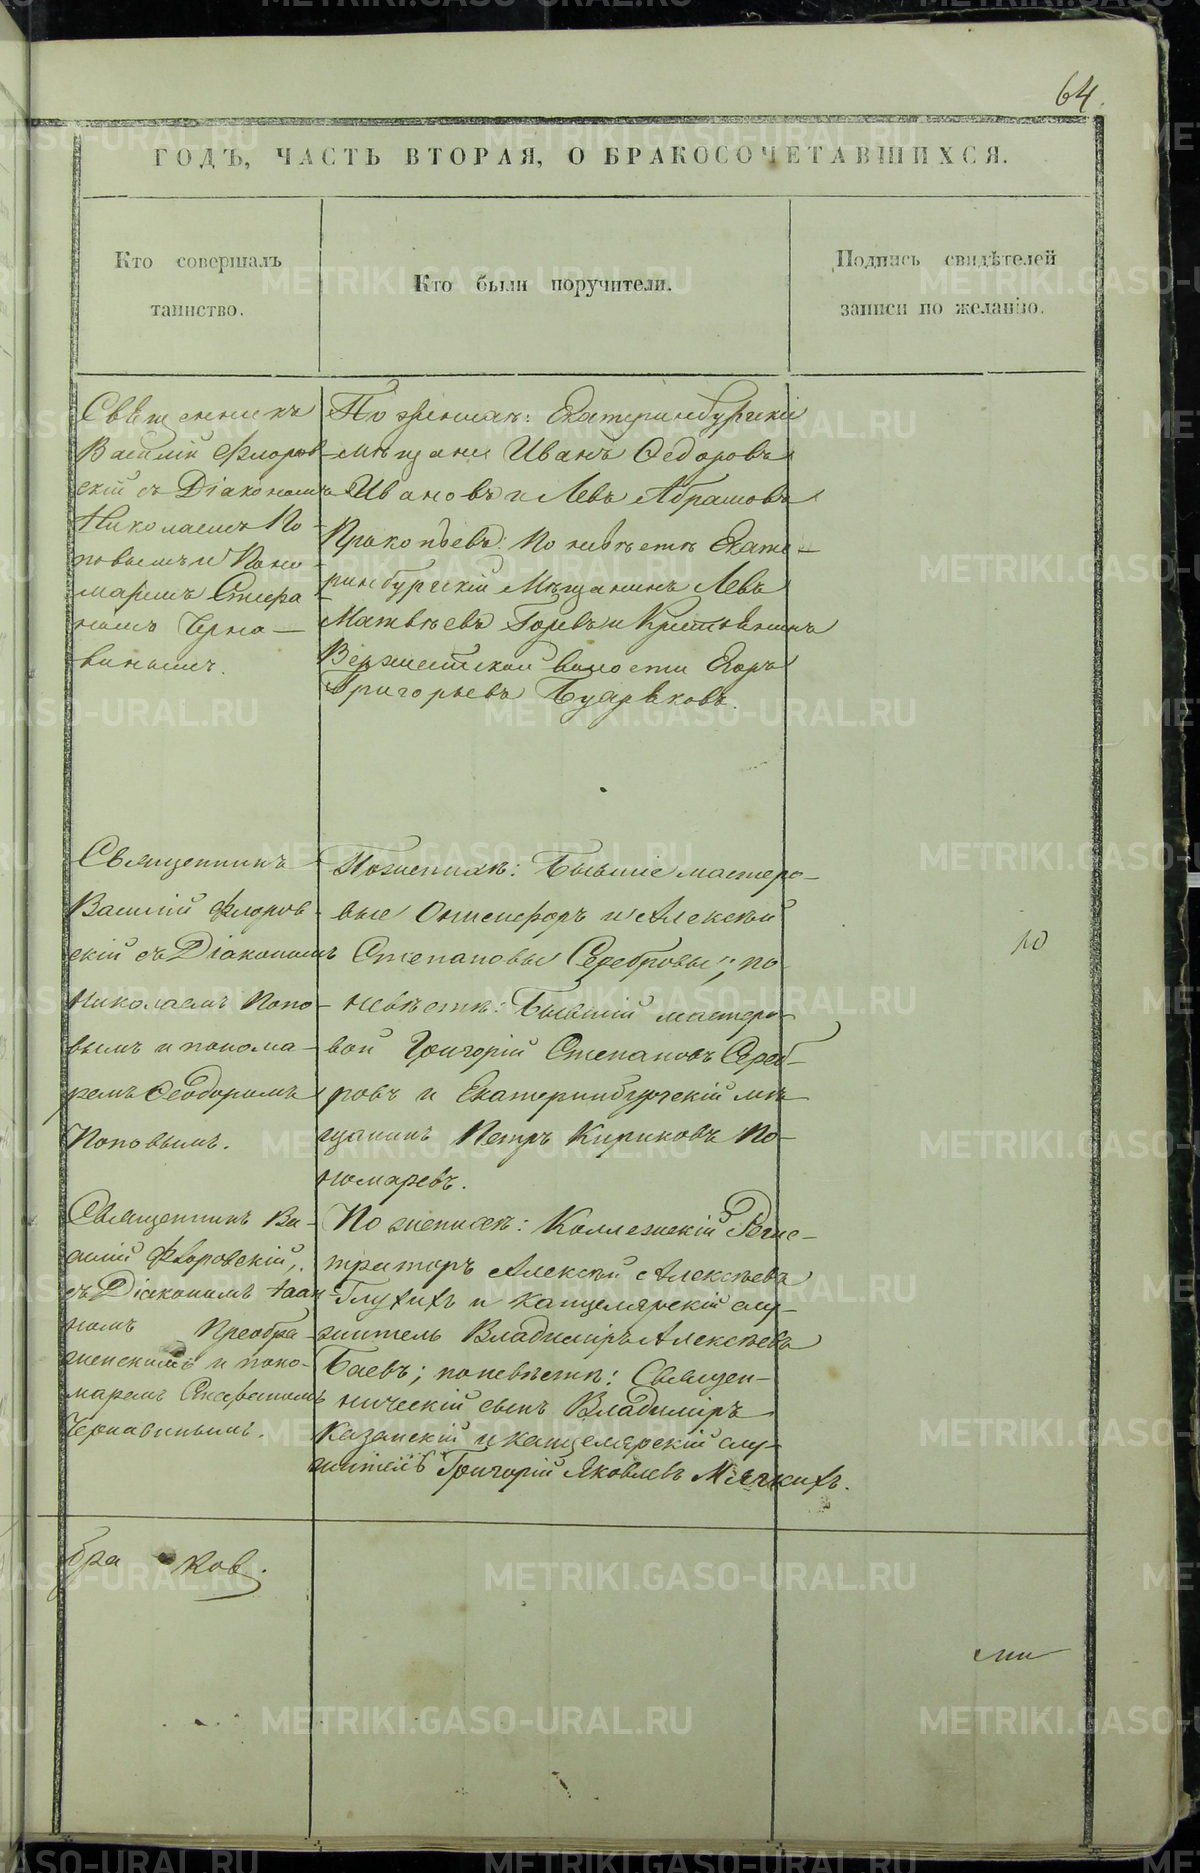 64.
ГОДЪ, ЧАСТЬ ВТОРАЯ, О БРАКОСОЧЕТАВШИХСЯ.
Кто совершалъ
таинство.
Кто были поручители.
Подпись свидѣтелей
записи по желанію.
Священникъ
Василій Флоров-
скій съ Діакономъ
Николаемъ По-
повымъ и Поно-
маремъ Стефа
номъ Черно-
винымъ.
По женихѣ: Екатеринбургскіе
мѣщане Иванъ Ѳедоровъ
Ивановъ и Левъ Абрамовъ
Прокопьевъ; По невѣстѣ Екате-
ринбургскій Мѣщанинъ Левъ
Матвѣевъ и Крестьянинъ
волости Егоръ
Григорьевъ
Священникъ
Василій Флоров-
скій съ Діакономъ
Николаемъ Попо-
вымъ и понома-
ремъ Ѳеодоромъ
Поповымъ.
По женихѣ: Бывшіе мастеро-
вые Онисифоръ и Алексѣй
Степановы Серебровы; по
невѣстѣ: Бывшій мастеро-
вой Григорій Степановъ Сереб-
ровъ и Екатеринбургскій мѣ
щанинъ Петръ Кириковъ По-
номаревъ.
10
Священникъ Ва-
силій Флоровскій,
съ Діакономъ
Преобра-
женскимъ и поно-
маремъ Стефаномъ
Чернавинымъ.
По женихѣ: Коллежскій Регис-
траторъ Алексѣй Алексѣевъ
Глухихъ и канцелярскій слу-
житель Владиміръ Алексѣевъ
Баевъ; по невѣстѣ: Священ-
ническій сынъ Владиміръ
Казанскій и канцелярскій слу-
житель Григорій Яковлевъ Мягкихъ.
бра ков.